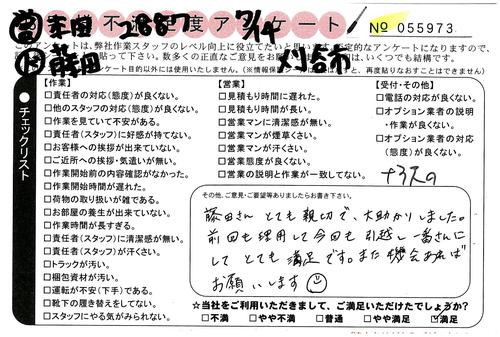 不満足度アンケート
2887
7/14
No 055973
刈谷市
このアンケートは、弊社作業スタッフのレベル向上に役立てたいと思い
定的なアンケートになりますので、
数多くの正直なご意見をお願い
は、いくつでも結構です。
ケート目的以外には使用いたしません。
再度貼りなおすことはできません
チェックリスト
【作業】
□責任者の対応(態度)が良くない。
□他のスタッフの対応(態度)が良くない。
□作業を見ていて不安がある。
□責任者(スタッフ)に好感が持てない。
□お客様への挨拶が出来ていない。
□ご近所への挨拶・気遣いが無い。
□作業開始前の内容確認がなかった。
□作業開始時間が遅れた。
□荷物の取り扱いが雑である。
□お部屋の養生が出来ていない。
□作業時間が長すぎる。
□責任者(スタッフ)に清潔感が無い。
□責任者(スタッフ)が汗くさい。
□トラックが汚い。
□梱包資材が汚い。
□運転が不安(下手)である。
□靴下の履き替えをしてない。
□スタッフにやる気がみられない。
【営業】
□見積もり時間に遅れた。
□見積もり時間が長い。
□営業マンに清潔感が無い。
□営業マンが煙草くさい。
□営業マンが汗くさい。
□営業態度が良くない。
□営業の説明と作業が一致してない。
【受付・その他】
□電話の対応が良くない。
□オプション業者の説明
・作業が良くない。
□オプション業者の対応
(態度)が良くない。
その他、ご意見・ご要望等ありましたらお書き下さい。
藤田さん とても親切で、大助かりしました。
前回も使用して今回も引越し一番さんに
して とても満足です。また機会あれば
お願いします
☆当社をご利用いただきまして、ご満足いただけたでしょうか?
□不満 □やや不満 □普通 □やや満足 ☑満足